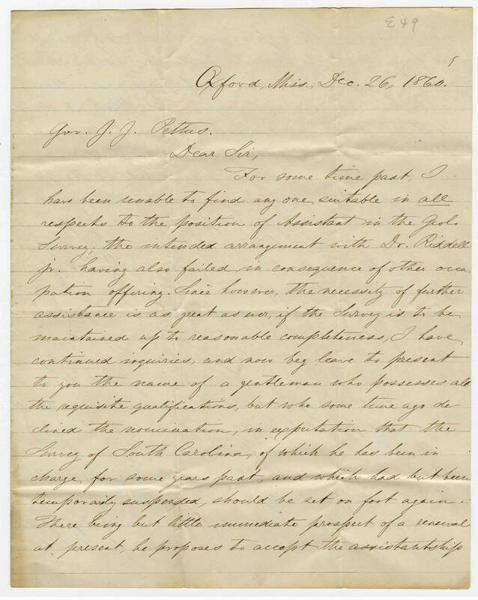 E49
Oxford, Miss. Dec. 26, 1860.
Gov. J. J. Pettus.
Dear Sir,
For some time past, I
have been unable to find any one suitable in all
respects to the position of Assistant in the Geol.
Survey, the intended arrangement with Dr. Riddell
jr. having also failed in consequence of other occu
pation offering. Since however, the necessity of further
assistance is as great as ever, if the Survey is to be
maintained up to reasonable completeness, I have
continued inquiries, and now beg leave to present
to you the name of a gentleman who possesses all
the requisite qualifications, but who some time ago de
clined the nomination, in expectation that the
Survey of South Carolina, of which he has been in
charge for some years past, and which had but been
temporarily suspended, should be set on foot again.
There being but little immediate prospect of a renewal
at present, he proposes to accept the assistantship